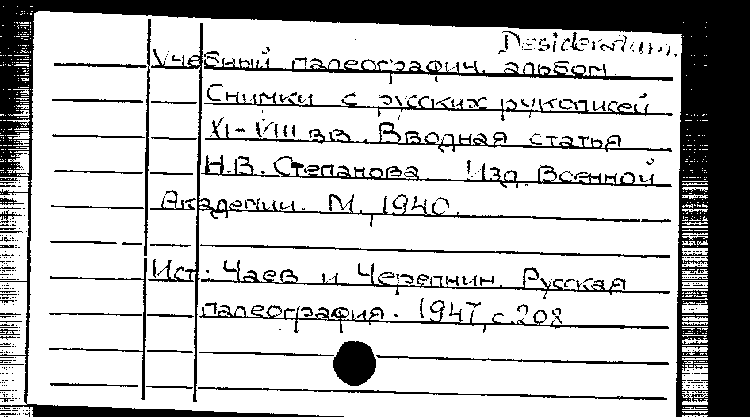 Desideratum.
Учебный палеографич. альбом
Снимки с русских рукописей
XI-VIII вв. Вводная статья
Н.В. Степанова. Изд. Военной
Академии. М., 1940.
Ист.: Чаев и Черепнин. Русская
палеография. 1947, с.208